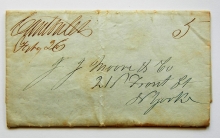 Feby 26
5
J J Moore & Co
211 Front St
N York